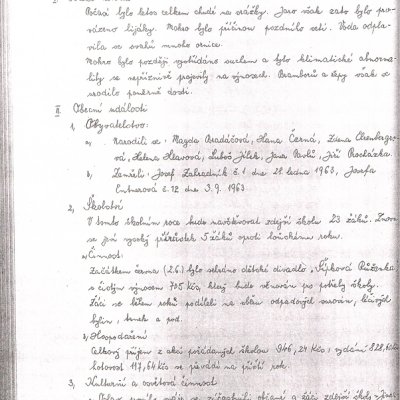 Počasí bylo letos celkem chudé na srážky. Jaro však zato bylo pro-
vázeno lijáky. Mokro bylo příčinou pozdního setí. Voda odpla-
vila ze svahů mnoho ornice.
Mokro bylo později vystřídáno suchem a tyto klimatické abnorma-
lity se nepříznivě projevily na výnosech. Bramborů a řepy však se
urodilo poměrně dosti.
III Obecní události
1, Obyvatelstvo:
a, Narodili se: Magda Bradáčová, Hana Černá, Zdena
vá, Helena Hlavová, Luboš Jílek, Jana Pavlů, Jiří Procházka.
b, Zemřeli: Josef Zahradník č. 1 dne 21. ledna 1963, Josefa
č. 12 dne 3. 9. 1963
2, Školství
V tomto školním roce bude navštěvovat zdejší školu 23 žáků. Znova
se jeví vysoký přírůstek 5 žáků oproti loňskému roku.
a, Činnost:
Začátkem června (2.6.) bylo sehráno dětské divadlo "Šípková Růženka
s čistým výnosem 705 Kčs, který bude věnován pro potřeby školy.
Žáci se během roku podíleli na sběru odpadových surovin, léčivých
bylin, a pod.
b, Hospodaření
Celkový příjem z akcí pořádaných školou 946,24 Kčs, vydání 828,60
hotovost 117,64 Kčs se převádí na příští rok.
3, Kulturní a osvětová činnost